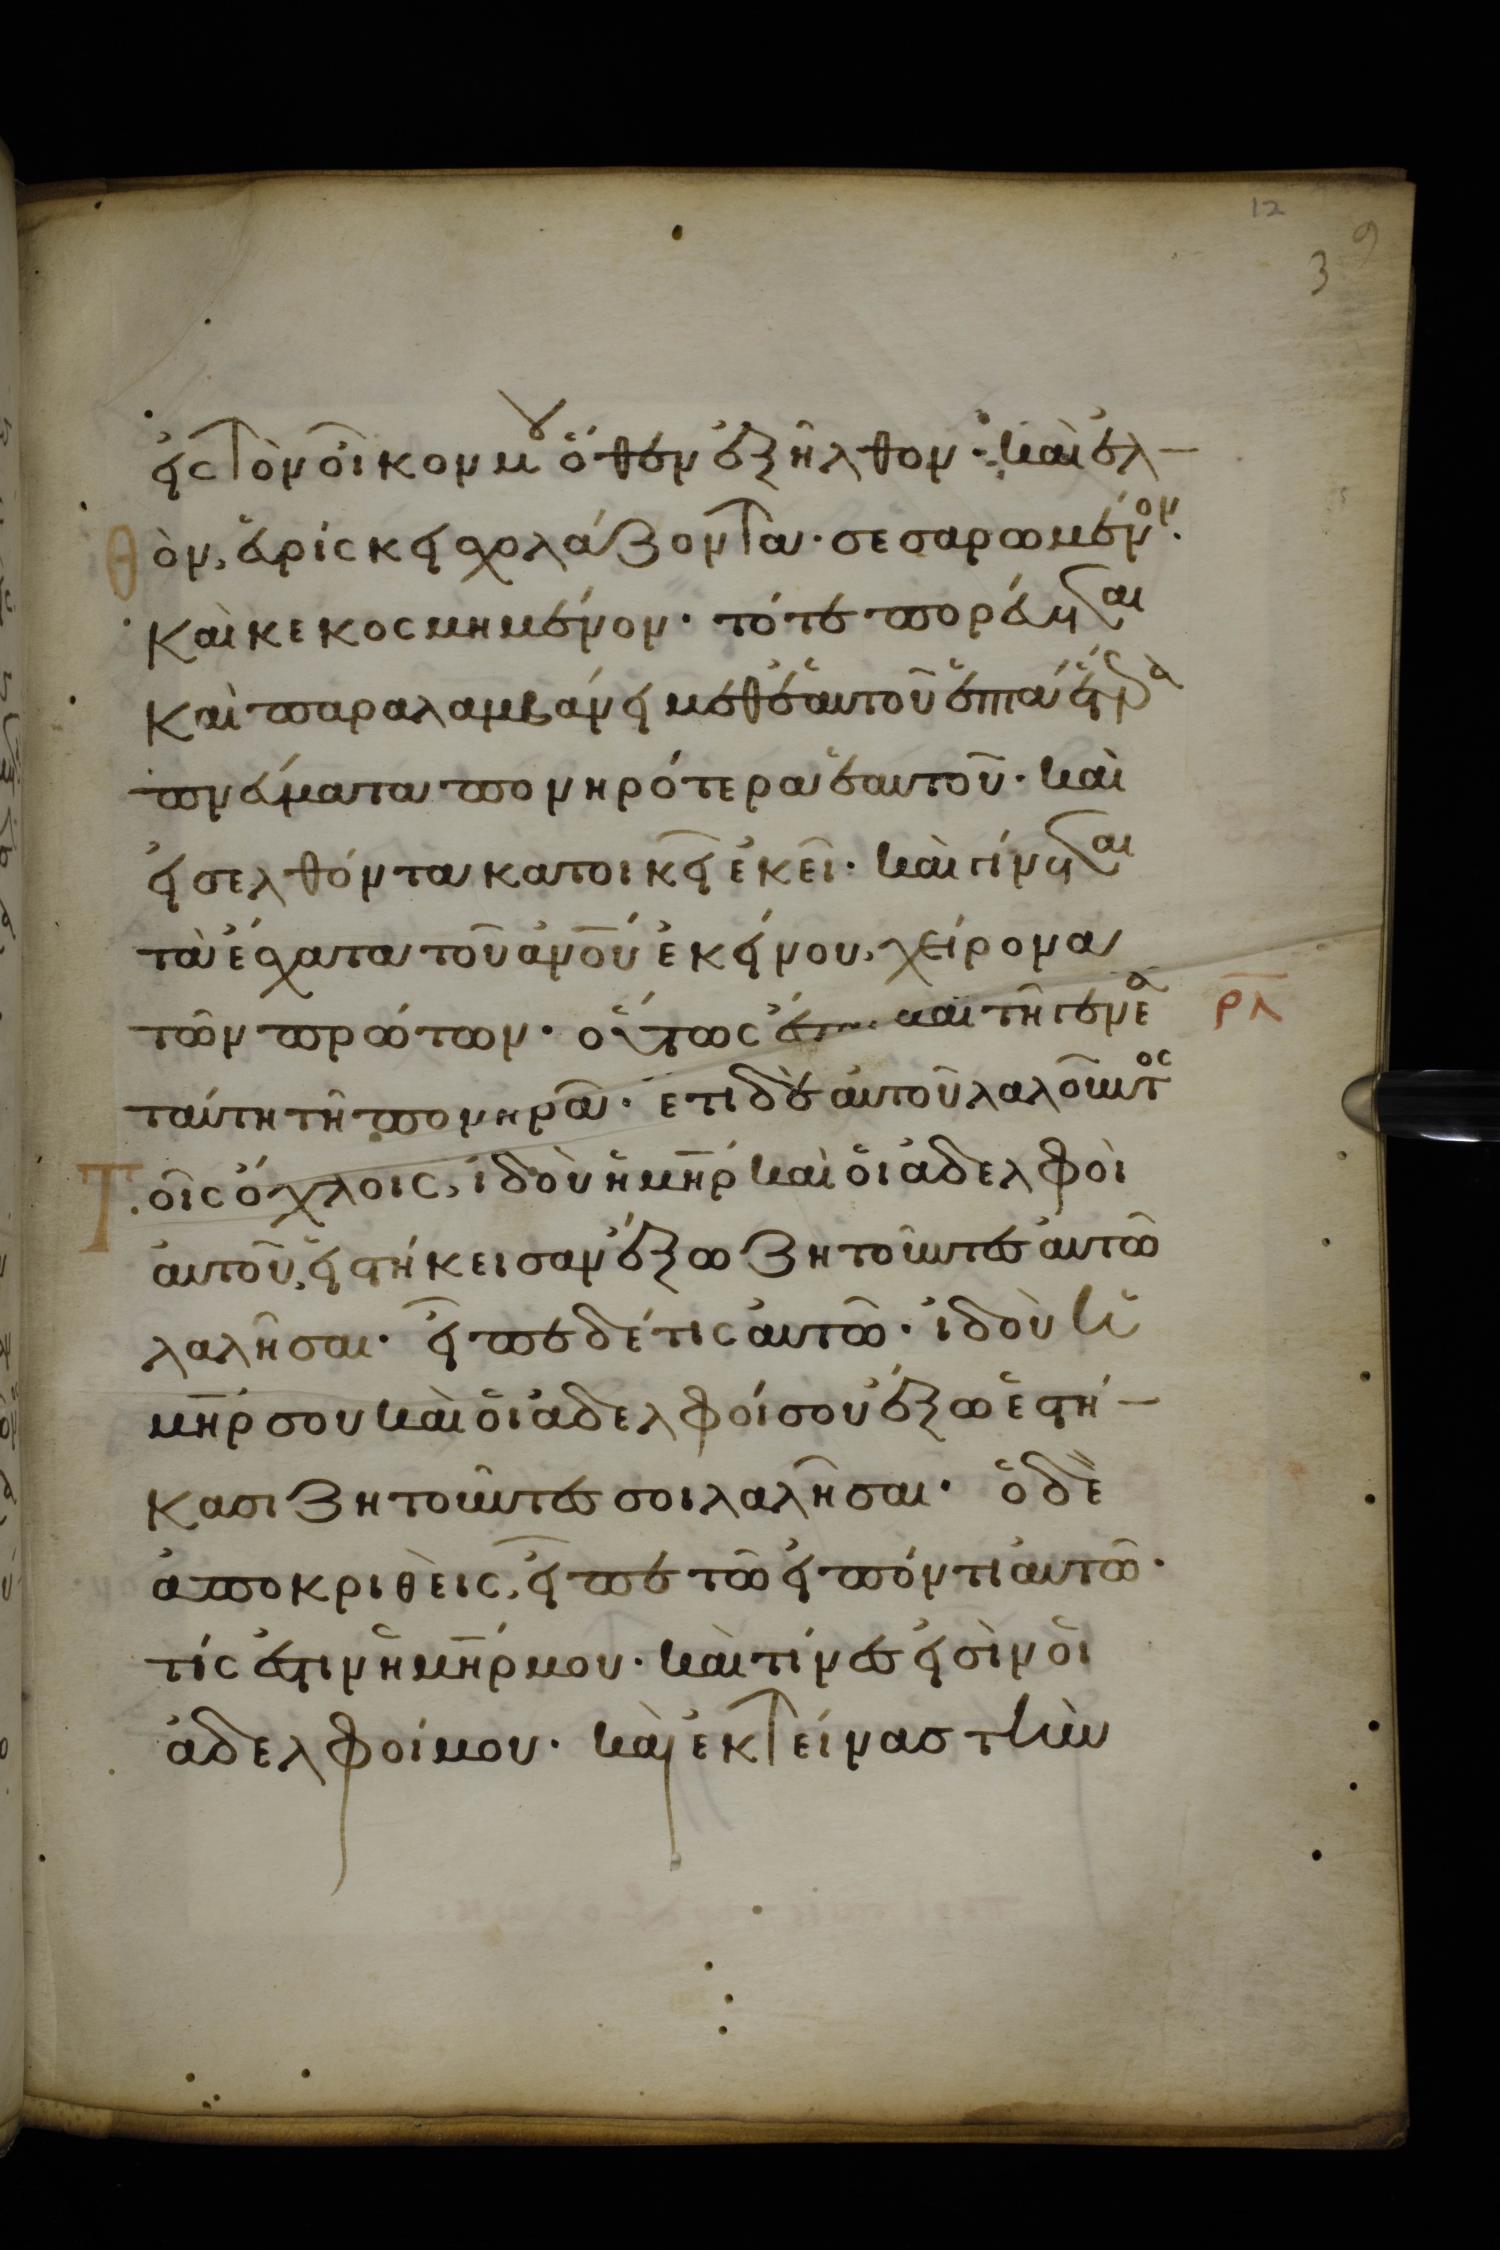 12
9
3
εἰς τὸν οἶκον μου ὅθεν ἐξῆλθον· καὶ ἐλ-
θὸν, εὑρίσκει σχολάζοντα· σεσαρωμένον·
καὶ κεκοσμημένον· τότε πορεύεται
καὶ παραλαμβάνει μεθ' ἑαυτοῦ ἑπτὰ ἕτερα
πνεύματα πονηρότερα ἑαυτοῦ· καὶ
εἰσελθόντα κατοικεῖ ἐκεῖ· καὶ γίνεται
τὰ ἔσχατα τοῦ ἀνου ἐκείνου, χείρονα
τῶν πρώτων· οὕτως ἔσται καὶ τῆ γενεᾶ
ρλ
ταύτη τῆ πονηρᾶ· ἔτι δὲ αὐτοῦ λαλοῦντος
Τοῖς ὄχλοις, ἰδοὺ ἡ μηρ καὶ οἱ ἀδελφοὶ
αὐτοῦ, εἱστήκεισαν ἔξω ζητοῦντες αὐτῶ
λαλῆσαι· εἶπε δέ τις αὐτῶ· ἰδοὺ ἡ
μηρ σου καὶ οἱ ἀδελφοί σου ἔξω ἑστή-
κασι ζητοῦντες σοι λαλῆσαι· ὁ δὲ
ἀποκριθεὶς, εἶπε τῶ εἰπόντι αὐτῶ·
τίς ἐστιν ἡ μηρ μου· καὶ τίνες εἰσὶν οἱ
ἀδελφοί μου· καὶ ἐκτείνας τὴν